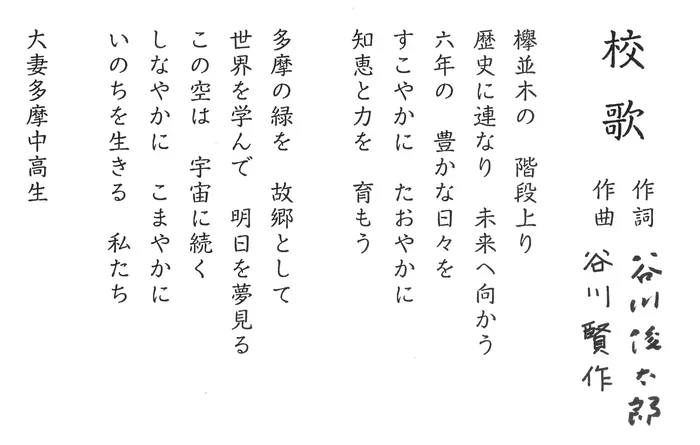 校歌
作詞 谷川俊太郎
作曲 谷川賢作
欅並木の 階段上り
歴史に連なり 未来へ向かう
六年の 豊かな日々を
すこやかに たおやかに
知恵と力を 育もう
多摩の緑を 故郷として
世界を学んで 明日を夢見る
この空は 宇宙に続く
しなやかに こまやかに
いのちを生きる 私たち
大妻多摩中高生